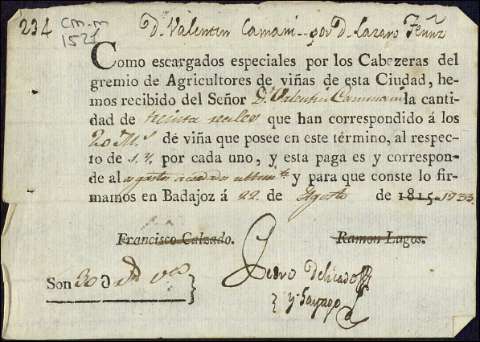 234 CM-M
1521
D. Valentin Camani por D. Lazaro
Como escargados especiales por los Cabezeras del
gremio de Agricultores de viñas de esta Ciudad, he-
mos recibido del Señor D. Valentin Cammani la canti-
dad de treinta reales que han correspondido á los
20 Ms. de viña que posee en este término, al respec-
to de por cada uno, y esta paga es y correspon-
de al agosto y para que conste lo fir-
mamos en Badajoz á 22 de Agosto de 1815
Francisco Calzado. Ramon Lagos.
Pedro Delicado
Son 30